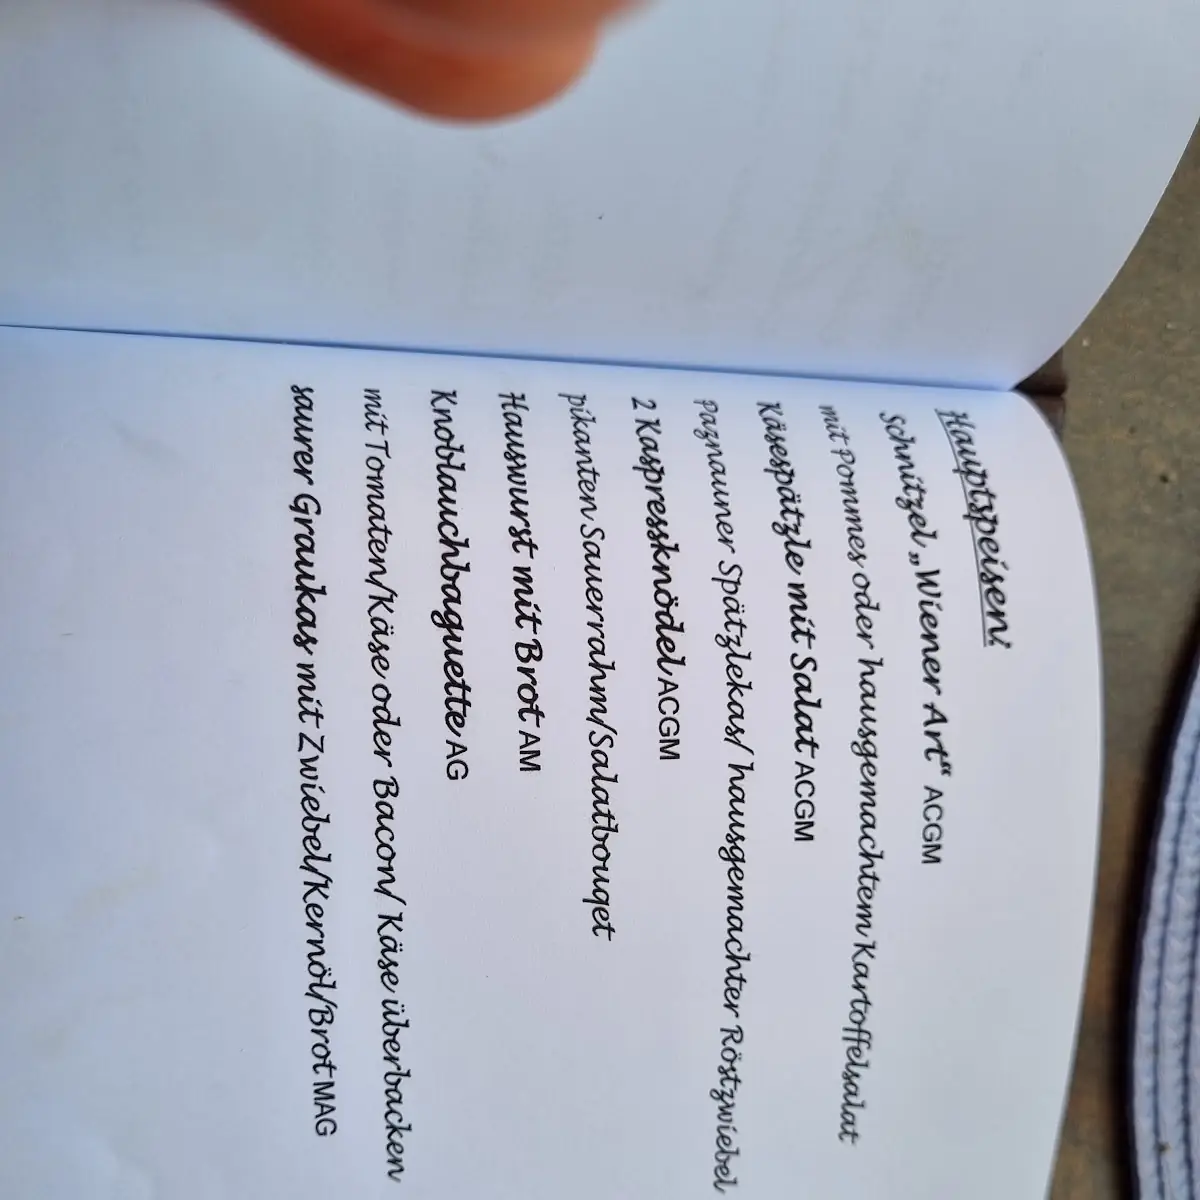 Hauptspeisen:
Schnitzel „Wiener Art“ ACGM
mit Pommes oder hausgemachtem Kartoffelsalat
Käsespätzle mit Salat ACGM
Paznauner Spätzlekas/ hausgemachter Röstzwiebel
2 Kaspressknödel ACGM
pikanten Sauerrahm/Salatbouqet
Hauswurst mit Brot AM
Knoblauchbaguette AG
mit Tomaten/Käse oder Bacon/ Käse überbacken
saurer Graukas mit Zwiebel/Kernöl/Brot MAG